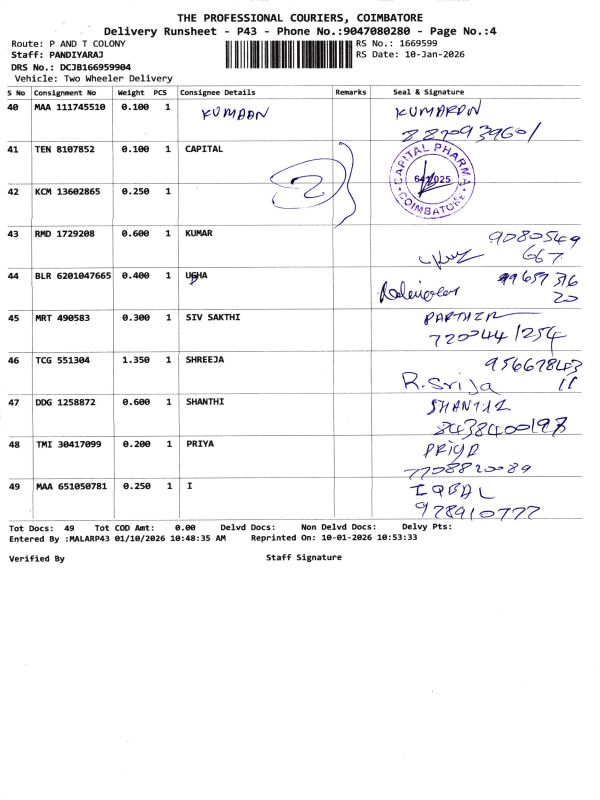 THE PROFESSIONAL COURIERS, COIMBATORE
Delivery Runsheet - P43 - Phone No.:9047080280 - Page No.:4
Route: P AND T COLONY RS No.: 1669599
Staff: PANDIYARAJ RS Date: 10-Jan-2026
DRS No.: DCJB166959904
Vehicle: Two Wheeler Delivery
S No Consignment No Weight PCS Consignee Details Remarks Seal & Signature
40 MAA 111745510 0.100 1 KUMARAN KUMARAN
8870939601
41 TEN 8107852 0.100 1 CAPITAL CAPITAL PHARMA
COIMBATORE
42 KCM 13602865 0.250 1
43 RMD 1729208 0.600 1 KUMAR 9080549
667
44 BLR 6201047665 0.400 1 USHA
20
45 MRT 490583 0.300 1 SIV SAKTHI
7200441254
46 TCG 551304 1.350 1 SHREEJA 956678483
R.Srija 11
47 DDG 1258872 0.600 1 SHANTHI SHANTHI
8438400197
48 TMI 30417099 0.200 1 PRIYA PRIYA
7708820089
49 MAA 651050781 0.250 1 I IQBAL
978910777
Tot Docs: 49 Tot COD Amt: 0.00 Delvd Docs: Non Delvd Docs: Delvy Pts:
Entered By :MALARP43 01/10/2026 10:48:35 AM Reprinted On: 10-01-2026 10:53:33
Verified By Staff Signature